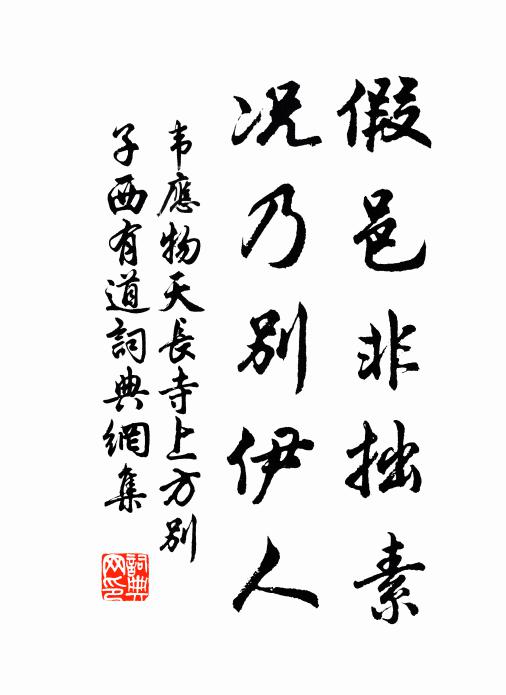 假邑非拙素
况乃别伊人
韦應物天長寺上方别
子西有道詞典網集
詞典
网印